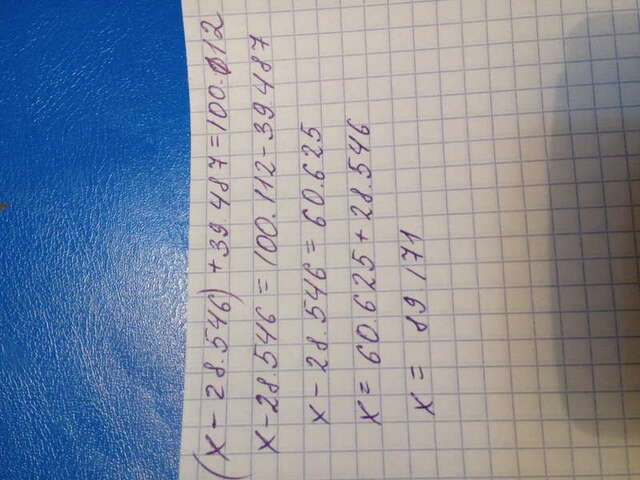 (x - 28.546) + 39.487 = 100.112
x - 28.546 = 100.112 - 39.487
x - 28.546 = 60.625
x = 60.625 + 28.546
x = 89.171